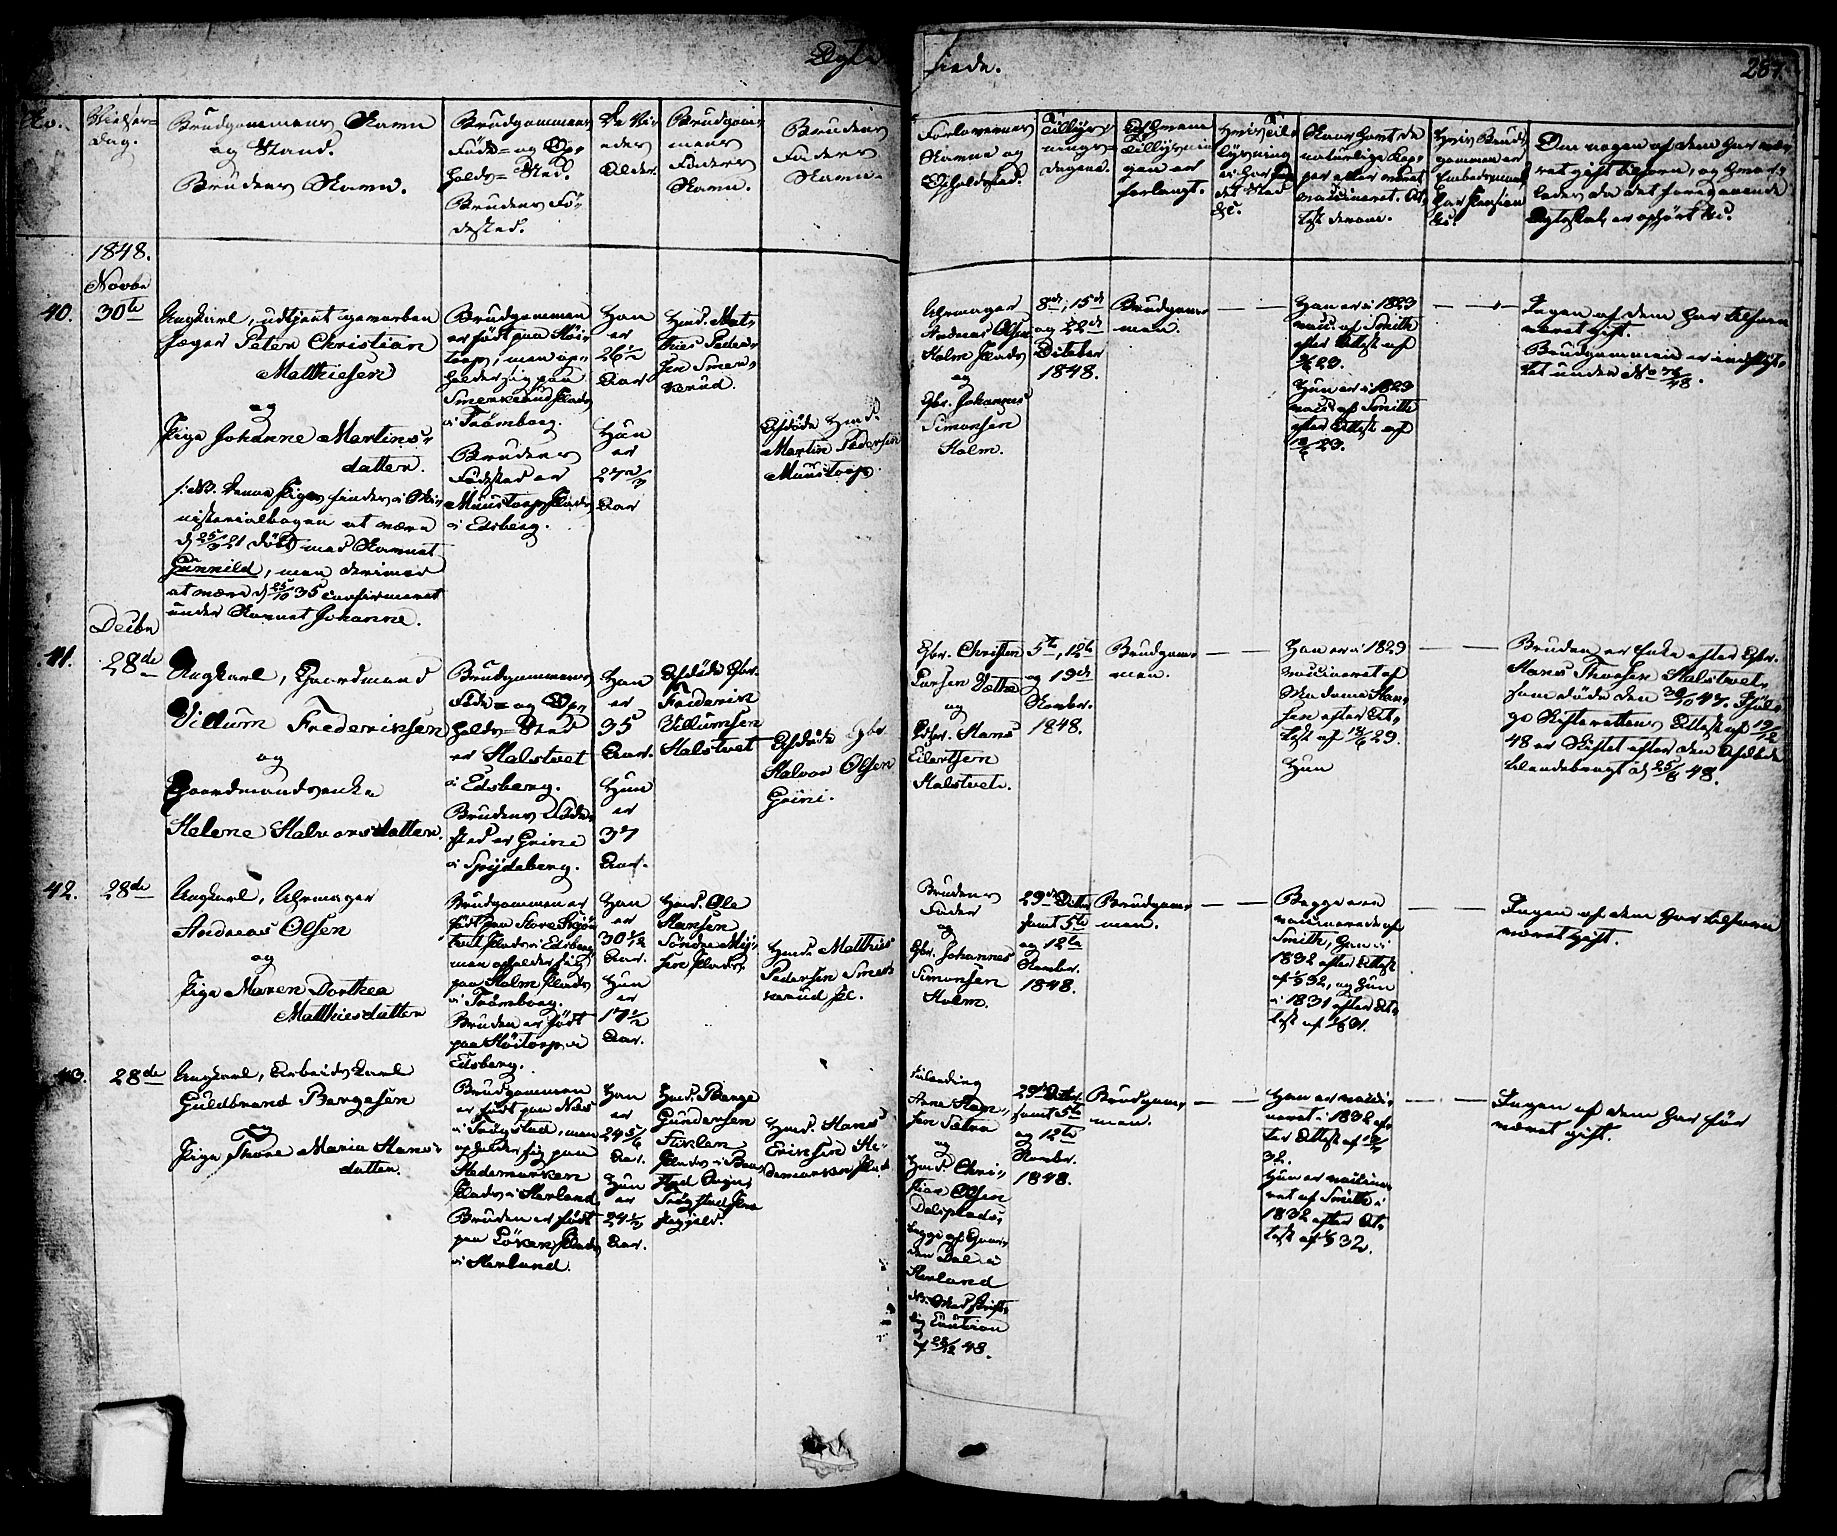 Ægte-
viede.
287.
No.
Vielses=
dag.
Brudgommens Navn
og Stand.
Brudens Navn.
Brudgommens
Føde= og Op-
holds=Sted.
Brudens Fø-
dested.
De Vi-
edes
Alder.
Brudgom-
mens
Faders
Navn.
Brudens
Faders
Navn.
Forlovernes
Navne og
Opholdssted.
Tillys-
nings=
dagene.
Af hvem
Tillysnin-
gen er
forlangt.
Hvis Til-
lysning
ei har
det Sted
&c.
Naar havt de
naturlige Kop-
per eller været
vaccineret. At-
test derom.
Hvis Brud-
gommen er
Embedsmand,
har Pension
&c.
Om nogen af dem har væ-
ret gift tilforn, og hvor-
ledes da det foregaaende
Ægteskab er ophørt &c.
1848.
Novbr
40.
30te
Ungkarl, udtjent gevorben
Jæger Peter Christian
Mathiesen
og
Pige Johanne Martins-
datter.
/: NB. denne Pige findes i Mi-
nisterialbogen at være
d 25/3 21 døbt med Navnet
Gunnild, men derimod
at være d 25/10 35 confirmeret
under Navnet Johanne.
Brudgommen
er født paa Høi-
torp, men op-
holder sig paa
Smerkerud Plads
i Trømborg.
Brudens
Fødested er
Muustorp Plads
i Edsberg.
Han
er
26 1/2
Aar
Hun
er
27 2/3
Aar
Hmd. Mat-
thies Peder-
sen Smer-
kerud
Afdøde Hmd.
Martin Pedersen
Muustorp
Uhrmager
Andreas Olsen
Holm Plads
og
Gbr. Johannes
Simonsen
Holm.
8de, 15de
og 22de
October
1848.
Brudgom-
men.
Han er i 1823
vacc. af Smith
efter Attest af
23.
Hun er i 1823
vacc. af Smith
efter Attest af
23.
Ingen af dem har tilforn
været gift.
Brudgommen er indflyt-
tet under No 76/48.
Decbr
41.
28de
Ungkarl, Gaardmand
Villum Frederiksen
og
Gaardmandsenke
Helene Halvorsdatter.
Brudgommens
Føde= og Op-
holds=Sted
er Halstvet
i Edsberg.
Brudens Føde-
sted er Grine
i Spydeberg.
Han
er
35
Aar.
Hun
er
37
Aar.
Afdøde Gbr.
Frederik
Villumsen
Halstvet
Afdøde Gbr
Halvor Olsen
Grini.
Gbr. Christen
Larsen Vætha
og
Gbr. Hans
Eilertsen
Halstvet.
5te, 12te
og 19de
Novbr.
1848.
Brudgom-
men.
Han er i 1829
vaccineret af
Madame Han-
sen efter At-
test af 12/6 29.
Hun
Bruden er Enke efter Gbr.
Hans Thoesen Halstvet,
som døde den 30/10 47. Iføl-
ge Skifterettens Attest af 19/12
48 er Skiftet efter den Afdøde
tilendebragt d 25/8 48.
42.
28de
Ungkarl, Uhrmager
Andreas Olsen
og
Pige Maren Dorthea
Matthiesdatter
Brudgommen er
født paa Store Skjøn-
Plads i Edsberg
men opholder sig
paa Holm Plads
i Trømborg.
Bruden er født
paa Høitorp i
Edsberg.
Han
er
30 1/2
Aar.
Hun
er
17 1/2
Aar.
Hmd. Ole
Hansen
Søndre My-
sen Plads.
Hmd. Matthies
Pedersen Smer-
kerud Pl.
Brudens
Fader
og
Gbr. Johannes
Simonsen
Holm.
29de Octbr
samt 5te
og 12te
Novbr.
1848.
Brudgom-
men.
Begge ere
vaccinerede af
Smith, han i
1832 efter Attest
af 32, og hun
i 1831 efter At-
test af 31.
Ingen af dem har tilforn
været gift.
43.
28de
Ungkarl, Arbeidskarl
Guldbrand Bergesen
og
Pige Thore Maria Hans-
datter.
Brudgommen
er født paa Næs
i Trøgstad, men
opholder sig paa
Hedemarken
Plads i Herland
Bruden er født
paa Løken Plads
i Herland.
Han
er
24 5/6
Aar.
Hun
er
24 1/3
Aar.
Hmd. Berge
Gundersen
Plads i Baa-
stad Sogn,
Trøgstad Præ-
stegjeld.
Hmd. Hans
Eriksen He-
demarken Plads
Arne Han-
sen Sætra
og
Hmd. Chri-
stian Olsen
Dalsplads,
begge af Gaar-
den Dal i
Herland
NB. Med skrift-
lig Caution
af 28/12 48.
29de Octbr.
samt 5te
og 12te
Novbr.
1848.
Brudgom-
men.
Han er vacci-
neret i 1832 ef-
ter Attest af
32.
Hun er vaccine-
ret af Smith i
1832 efter At-
test af 32.
Ingen af dem har før
været gift.